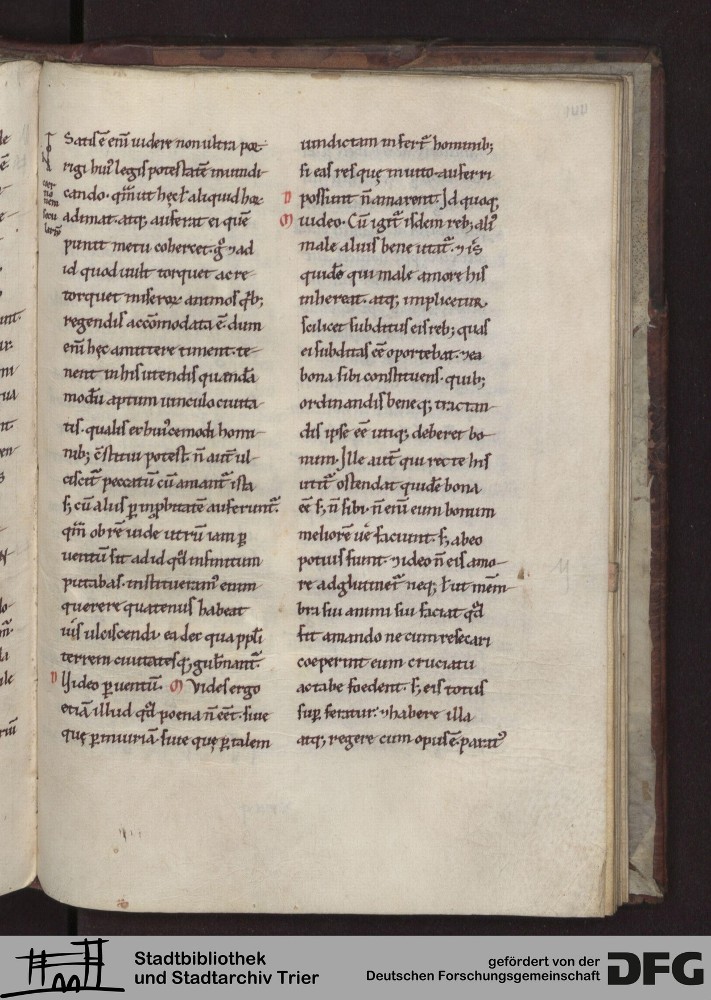 Satis ē eni͂ uidere non ultra por
rigi hui᷒ legis potestatē in uindi
cando · qm̄ ut hęc l̓ aliquid hor̄
adimat · atq; auferat ei quē
punit metu cohercet · g̊ ⁊ ad
id quod uult torquet ac re
torquet miseror̄ animos qͥb;
regendis accōmodata ē · dum
eni͂ hęc amittere timent · te
nent in his utendis quandā
modū aptum uinculo ciuita
tis · qualis ex hui᷒cemodi homi
nib; c̄stitui potest · n̄ aut̄ ul
ciscit᷑ peccatū cū amant᷑ ista
s; cū aliis ꝑ inp̱bitatē auferunt᷑ ·
qm̄ ob rē uide utrū iam ꝑ
uentū sit ad id qd̄ infinitum
putabas · institueram᷒ enim
querere quatenus habeat
ius ulciscendi ea lex qua pp̄li
terreni ciuitatesq; gub̄nant᷑ ·
Uideo ꝑuentū · Vides ergo
etiā illud qd̄ poena n̄ eēt · siue
quę ꝑ iniuriā siue quę ꝑ talem
uindictam infert᷑ hominib;
si eas res quę inuito auferri
possunt n̄ amarent · Id quoq;
uideo · Cū igit᷑ isdem reb; ali᷒
male alius bene utat᷑ · ⁊ is
quidē qui male amore his
inhereat · atq; implicetur
scilicet subditus eis reb; quas
ei subditas eē oportebat · ⁊ ea
bona sibi constituens · quib;
ordinandis beneq; tractan
dis ipse eē utiq; deberet bo
num · Ille aut̄ qui recte his
utit᷑ ostendat quidē bona
eē s; n̄ sibi · n̄ eni͂ eum bonum
meliorē ue faciunt · s; ab eo
potius fiunt · ⁊ ideo n̄ eis amo
re adglutinet᷑ neq; l̓ ut mēm
bra sui animi sui faciat qd̄
fit amando ne cum resecari
coeperint eum cruciatu
ac tabe foedent · s; eis totus
sup̱feratur · ⁊ habere illa
atq; regere cum opus ē · parat᷒
Stadtbibliothek
und Stadtarchiv Trier
gefördert von der
Deutschen Forschungsgemeinschaft
DFG